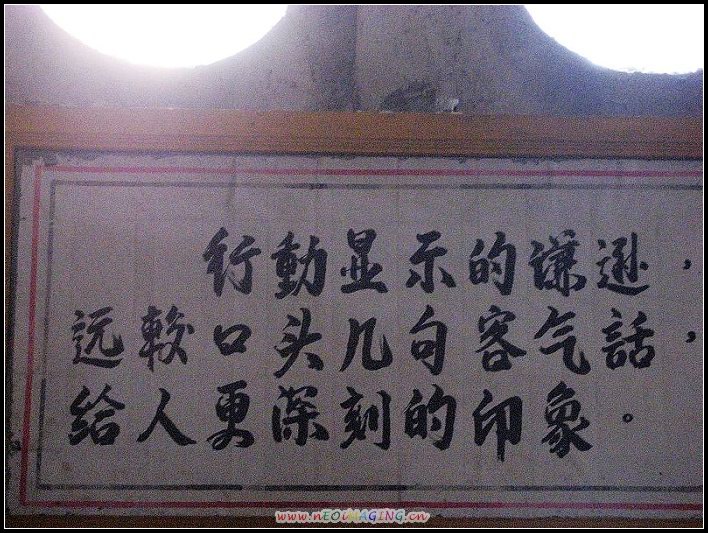 行動显示的谦逊，
远較口头几句客气話，
给人更深刻的印象。
www.nEOiMAGING.cn